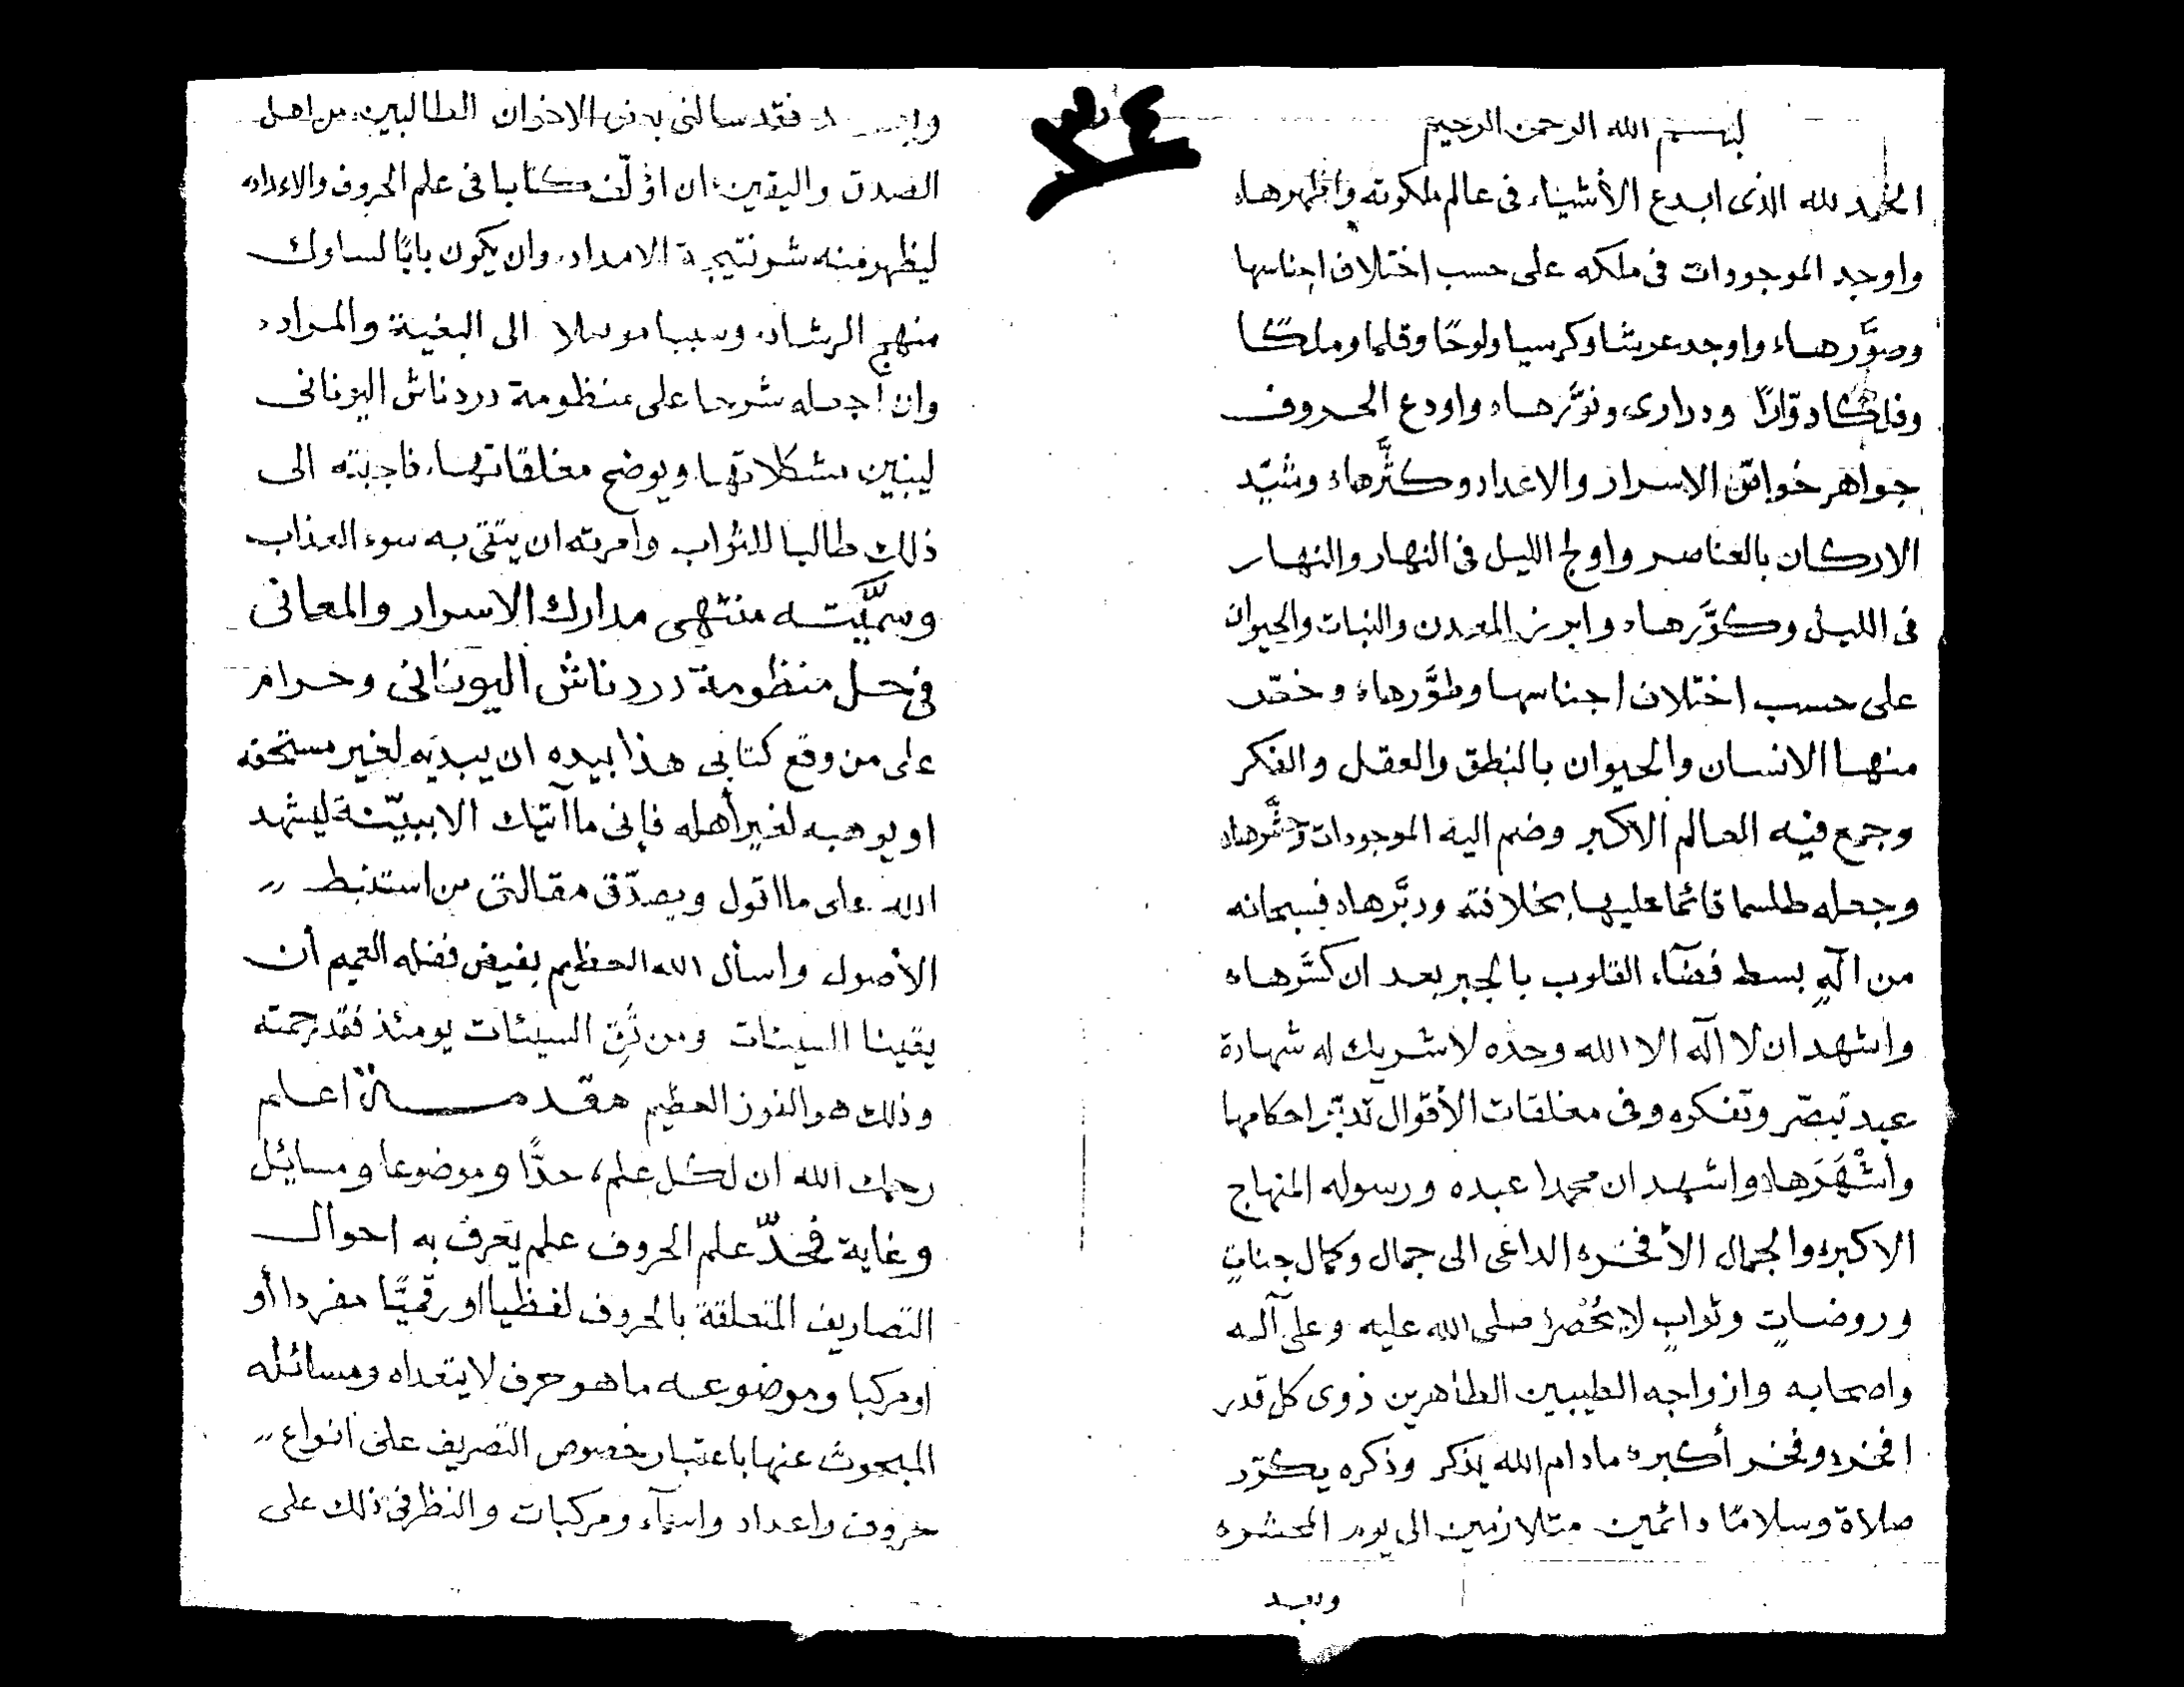 بسم الله الرحمن الرحيم
الحمد لله الذى ابدع الأشياء فى عالم ملكوته واظهرها
واوجد الموجودات فى ملكه على حسب اختلاف اجناسها
وصوَّرها واوجد عرشا وكرسيا ولوحًا وقلما وملكًا
وفلكا دوّارًا ودرارى ونوَّرها واودع الحروف
جواهر خواتن الاسرار والاعداد وكثَّرها وشيّد
الاركان بالعناصر واولج الليل فى النهار والنهار
فى الليل وكوَّرها وابرز المعدن والنبات والحيوان
على حسب اختلاف اجناسها وطوَّرها وخصّ
منها الانسان والحيوان بالنطق والعقل والفكر
وجمع فيه العالم الاكبر وضم اليه الموجودات
وجعله طلسما قائما عليها بخلافته ودبَّرها فسبحانه
من آلهٍ بسط فضآء القلوب بالجبر بعد ان كسَّرها
واشهد ان لا اله الا الله وحده لا شريك له شهادة
عبد تبصّر وتفكر وفى مغلقات الأقوال تدبّر احكامها
وأشْهَرَها واشهد ان محمدا عبده ورسوله المنهاج
الاكبر والجمال الأفخر الداعى الى جمال وكمال جناتٍ
وروضاتٍ وثوابٍ لا يُحْصَر صلى الله عليه وعلى آله
واصحابه وازواجه الطيبين الطاهرين ذوى كل قدر
افخر وفخر أكبر مادام الله يذكر وذكره يكرّر
صلاة وسلامًا دائمين متلازمين الى يوم المحشر
وبعد
٣٤
وبعد فقد سالنى بعض الاخوان الطالبين من اهل
الصدق واليقين ان اؤلّف كتابا فى علم الحروف والاعداد
ليظهر منه شر نتيجة الامداد وان يكون بابًا لسلوك
منهج الرشاد وسببا موصلا الى البغية والمراد
وان أجعله شرحا على منظومة دردناش اليونانى
ليبين مشكلاتها ويوضح مغلقاتها فاجبته الى
ذلك طالبا للثواب وامرته ان يتقى به سوء العذاب
وسمَّيته منتهى مدارك الاسرار والمعانى
فى حل منظومة دردناش اليونانى وحرام
على من وقع كتابى هذا بيده ان يبديه لغير مستحقه
او يوهبه لغير أهله فإنى ما آتيتك الا ببيّنة ليشهد
الله على ما اقول ويصدّق مقالتى من استنبط
الأصول واسأل الله العظيم بفيض فضله العميم أن
يقينا السيئات ومن تَقِ السيئات يومئذ فقد رحمته
وذلك هو الفوز العظيم مقدمة اعلم
رحمك الله ان لكل علم حدًّا وموضوعا ومسايل
وغاية فحدّ علم الحروف علم يعرف به احوال
التصاريف المتعلقة بالحروف لفظيا او رقميًّا مفردا أو
او مركبا وموضوعه ما هو حرف لا يتعداه ومسائله
المبحوث عنها باعتبار خصوص التصريف على انواع
حروف واعداد واسمآء ومركبات والنظر فى ذلك على